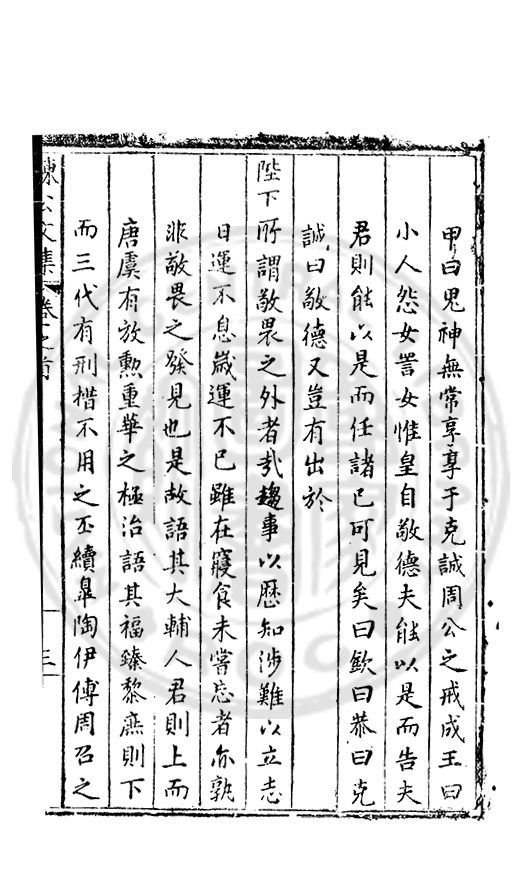 甲曰鬼神無常享享于克誠周公之戒成王曰
小人怨女詈女惟皇自敬德夫能以是而告夫
君則能以是而任諸已可見矣曰欽曰恭曰克
誠曰敬德又豈有出於
陛下所謂敬畏之外者哉趨事以歷知涉難以立志
日運不息歲運不已雖在寢食未嘗忘者亦孰
非敬畏之發見也是故語其大輔人君則上而
唐虞有放勲重華之極治語其福臻黎庶則下
而三代有刑措不用之丕續臯陶伊傅周召之
陳公文集 卷之首 三